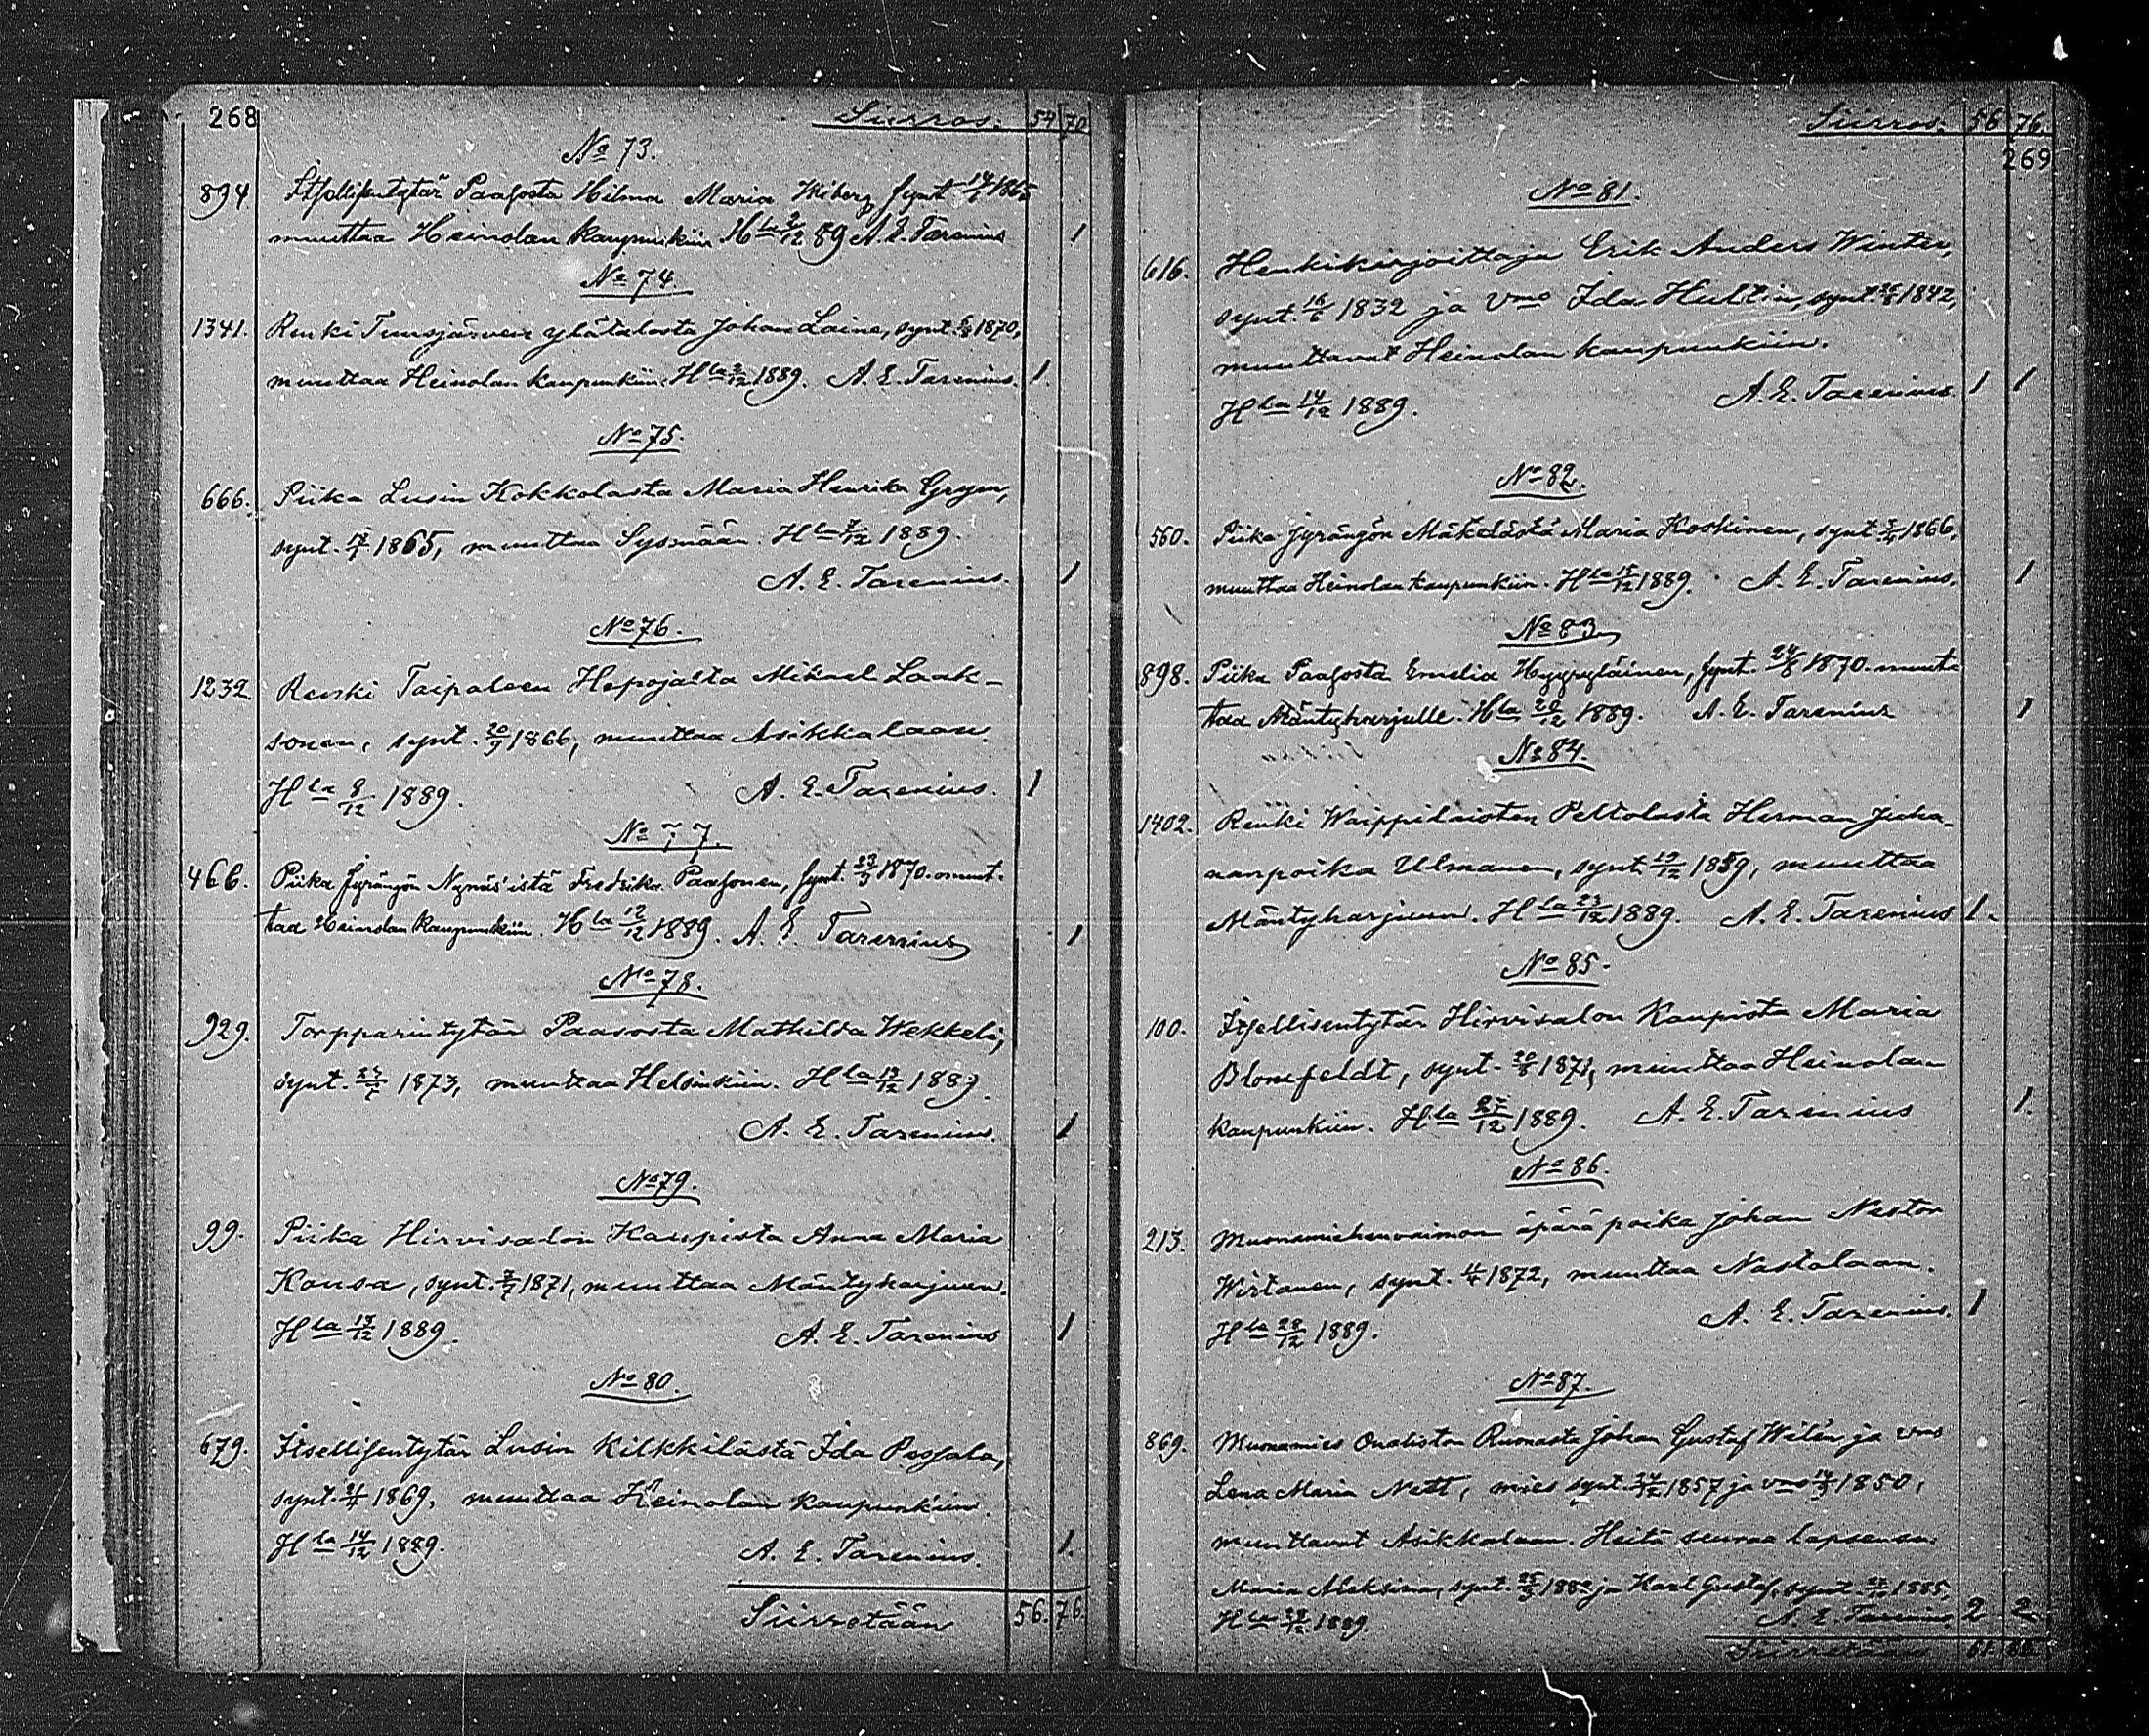 268 Siirros. 54 70
No 73.
894. Itsellisentytär Paasosta Hilma Maria Wiberg synt.
muuttaa Heinolan kaupunkiin Hla 2/12 89 A. E. Tarenius 1
No 74.
1341. Renki Tuusjärven ylätalosta Johan Laine, synt. 1870,
muuttaa Heinolan kaupunkiin. Hla 2/12 1889. A. E. Tarenius. 1.
No 75.
666. Piika Lusin Kokkolasta Maria Henrika Grym,
synt. 1865, muuttaa Sysmään. Hla 7/12 1889.
A. E. Tarenius. 1
No 76.
1232 Renki Taipaleen Hepojalta Mikael Laak-
sonen, synt. 20/9 1866, muuttaa Asikkalaan.
Hla 8/12 1889. A. E. Tarenius. 1
No 77.
466. Piika Jyrängön Nynäs'istä Fredrika Paasonen, synt. 23/3 1870. muut-
taa Heinolan kaupunkiin. Hla 12/12 1889. A. E. Tarenius 1
No 78.
929. Torpparintytär Paasosta Mathilda Wekkeli,
synt. 1873, muuttaa Helsinkiin. Hla 13/12 1889.
A. E. Tarenius. 1
No 79.
99. Piika Hirvisalon Kaupista Anna Maria
Kousa, synt. 1871, muuttaa Mäntyharjuun.
Hla 13/12 1889. A. E. Tarenius 1
No 80.
679. Itsellisentytär Lusin Kilkkilästä Ida Possala,
synt. 1869, muuttaa Heinolan kaupunkiin.
Hla 14/12 1889. A. E. Tarenius. 1.
Siirretään 56. 76.
Siirros. 56 76.
269
No 81.
616. Henkikirjoittaja Erik Anders Winter,
synt. 16/6 1832 ja vmo Ida Hultin, synt. 1842,
muuttavat Heinolan kaupunkiin.
Hla 14/12 1889. A. E. Tarenius. 1 1
No 82.
560. Piika Jyrängön Mäkelästä Maria Koskinen, synt. 1866,
muuttaa Heinolan kaupunkiin. Hla 15/12 1889. A. E. Tarenius. 1
No 83.
898. Piika Paasosta Emelia Hyyryläinen, synt. 1870. muut-
taa Mäntyharjulle. Hla 20/12 1889. A. E. Tarenius 1
No 84.
1402. Renki Waippilaisten Peltolasta Herman Juha-
nanpoika Ulmanen, synt. 19/12 1859, muuttaa
Mäntyharjuun. Hla 23/12 1889. A. E. Tarenius 1.
No 85.
100. Itsellisentytär Hirvisalon Kaupista Maria
Blomfeldt, synt. 20/8 1871, muuttaa Heinolan
kaupunkiin. Hla 27/12 1889. A. E. Tarenius 1.
No 86.
213. Muonamiehenvaimon äpärä poika Johan Nestor
Wirtanen, synt. 1872, muuttaa Nastolaan.
Hla 28/12 1889. A. E. Tarenius. 1
No 87.
869. Muonamies Ruonasta Johan Gustaf Wilén ja vmo
Lena Maria Nett, mies synt. 1857 ja vmo 1850,
muuttavat Asikkalaan. Heitä seuraa lapsensa
Maria Aleksina, synt. 1882 ja Karl Gustaf, synt. 1885.
Hla 1889. A. E. Tarenius. 2 2
Siirretään